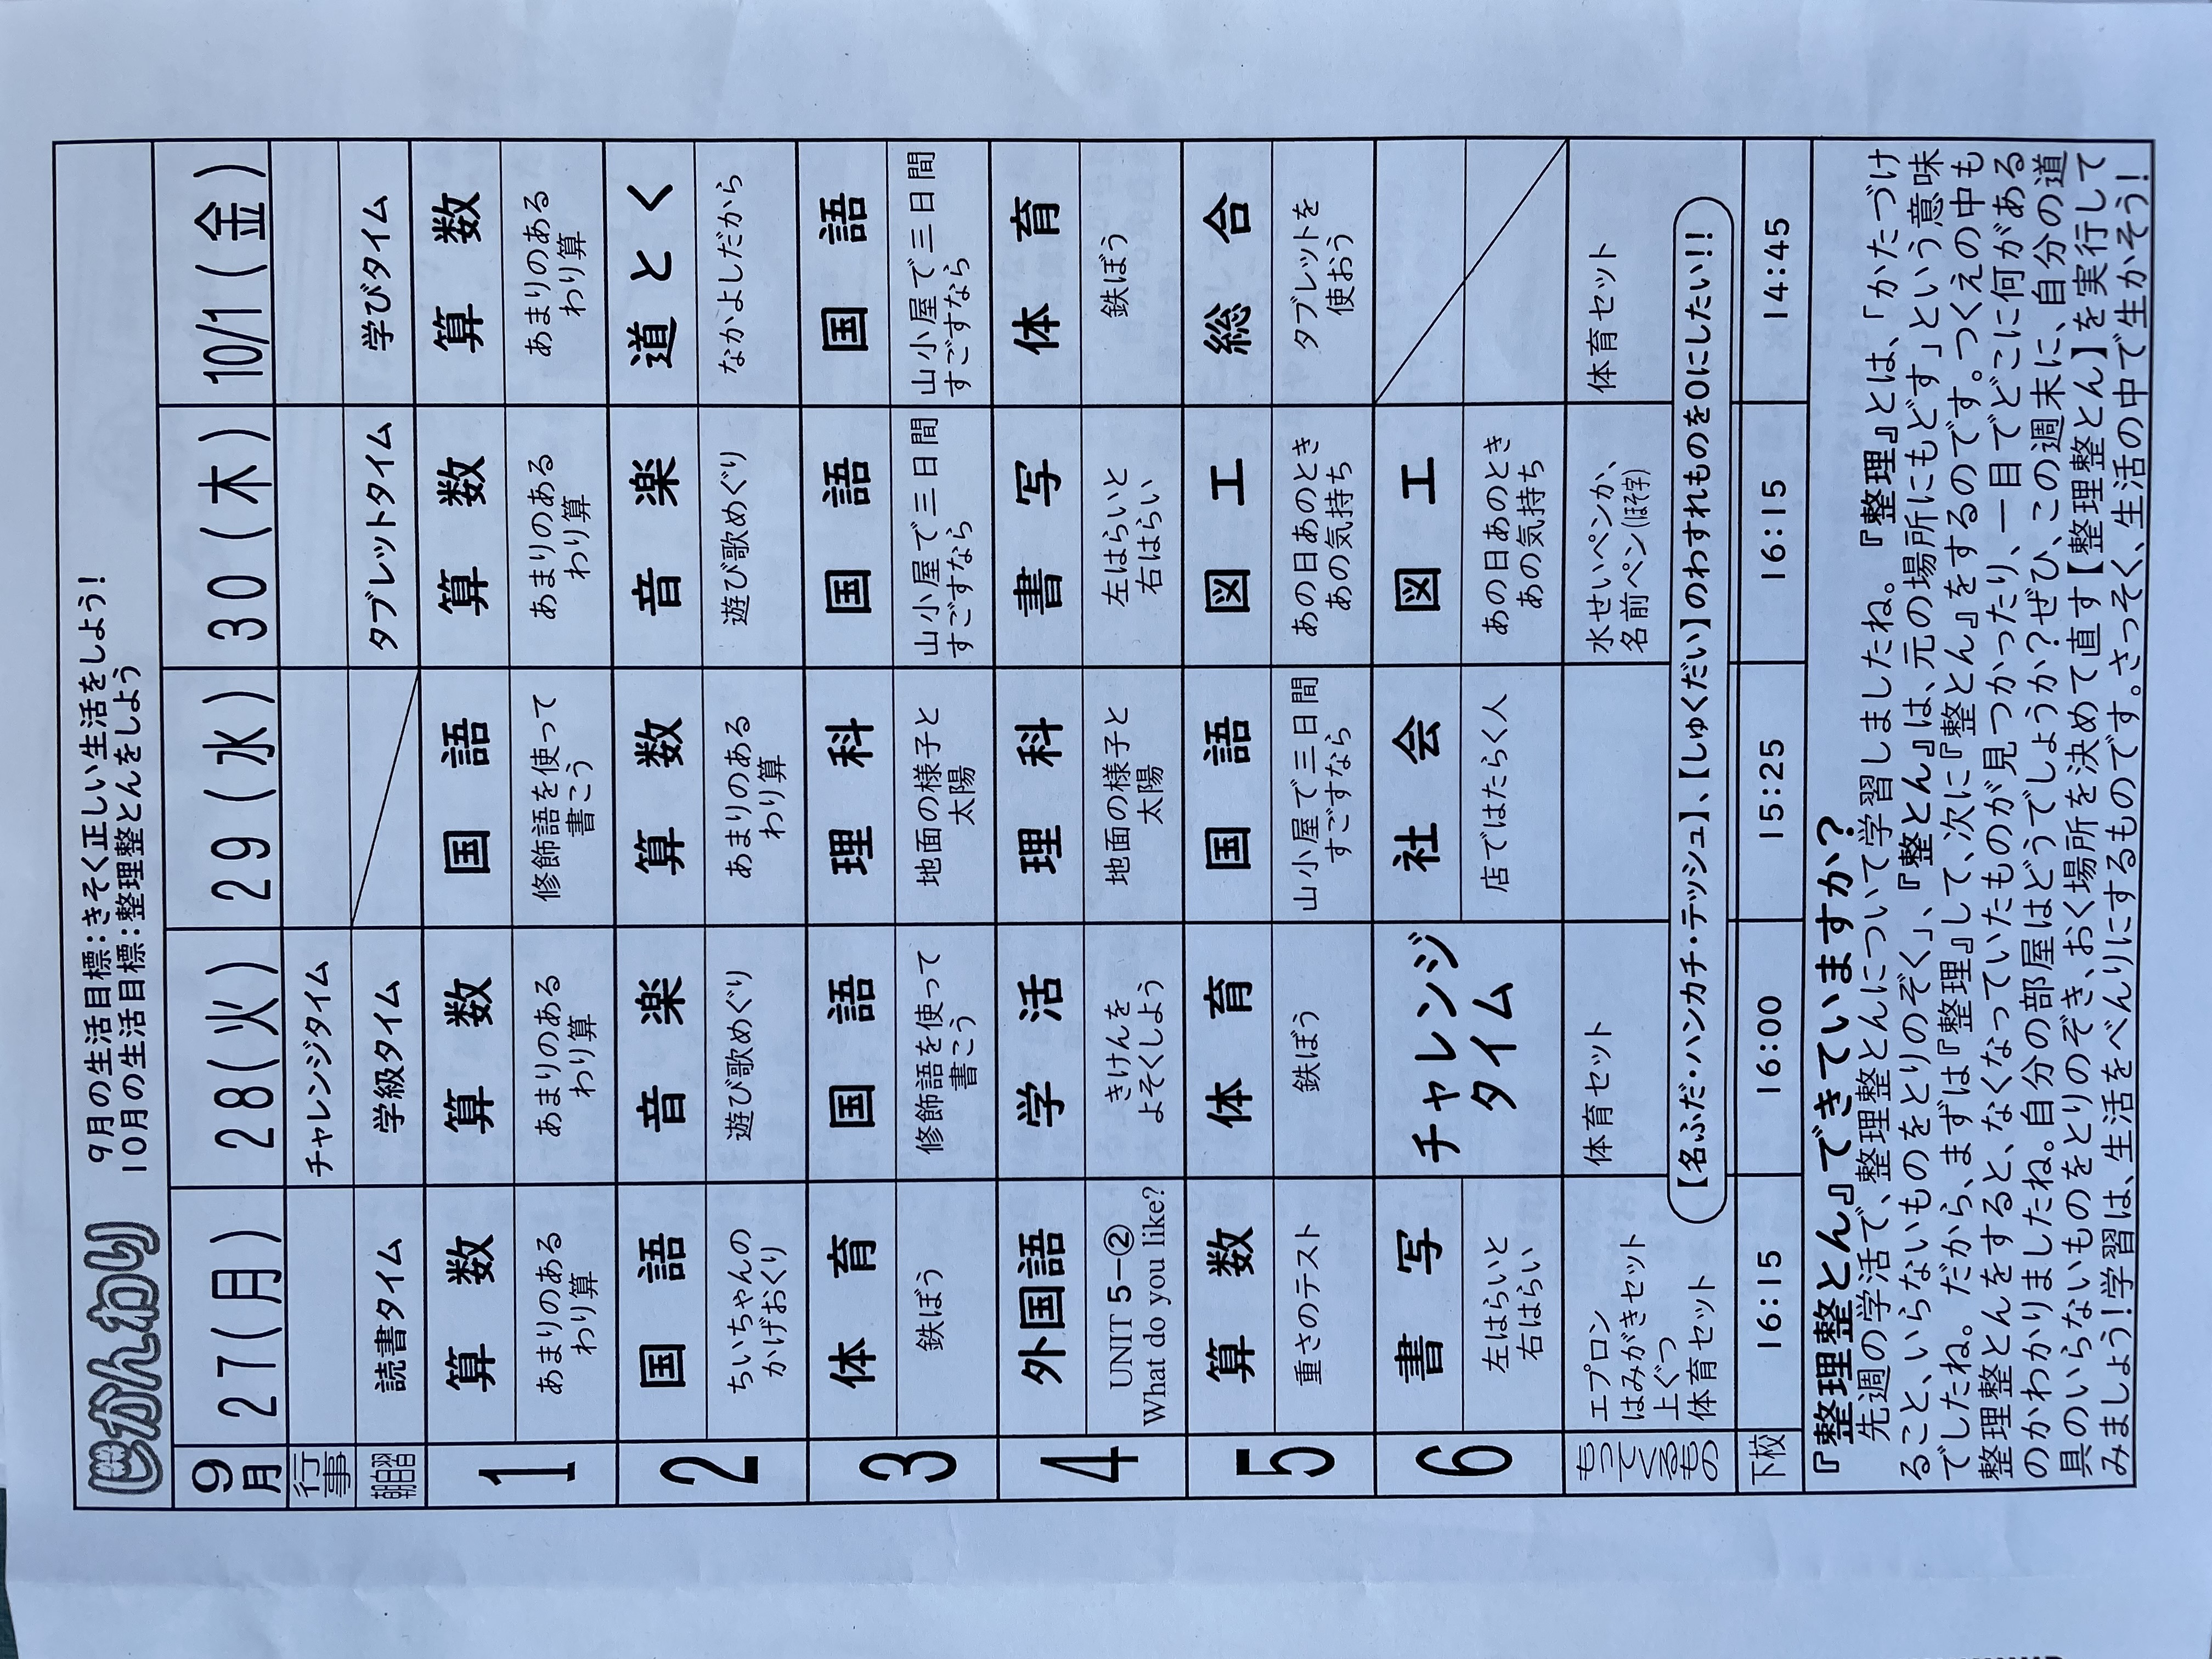 じかんわり
9月の生活目標：きそく正しい生活をしよう！
10月の生活目標：整理整とんをしよう
9月 27(月) 28(火) 29(水) 30(木) 10/1(金)
行事 チャレンジタイム
朝自習 読書タイム 学級タイム タブレットタイム 学びタイム
1 算数 算数 国語 算数 算数
あまりのある あまりのある 修飾語を使って あまりのある あまりのある
わり算 わり算 書こう わり算 わり算
2 国語 音楽 算数 音楽 道とく
ちいちゃんの 遊び歌めぐり あまりのある 遊び歌めぐり なかよしだから
かげおくり わり算
3 体育 国語 理科 国語 国語
鉄ぼう 修飾語を使って 地面の様子と 山小屋で三日間 山小屋で三日間
書こう 太陽 すごすなら すごすなら
4 外国語 学活 理科 書写 体育
UNIT 5-② きけんを 地面の様子と 左はらいと 鉄ぼう
What do you like? よそくしよう 太陽 右はらい
5 算数 体育 国語 図工 総合
重さのテスト 鉄ぼう 山小屋で三日間 あの日あのとき タブレットを
すごすなら あの気持ち 使おう
6 書写 チャレンジ 社会 図工
タイム
左はらいと 店ではたらく人 あの日あのとき
右はらい あの気持ち
もってくるもの エプロン 体育セット 水せいペンか、 体育セット
はみがきセット 名前ペン(ほそ字)
上ぐつ
体育セット
【名ふだ・ハンカチ・テッシュ】、【しゅくだい】のわすれものを0にしたい！！
下校 16:15 16:00 15:25 16:15 14:45
『整理整とん』できていますか？
先週の学活で、整理整とんについて学習しましたね。『整理』とは、「かたづけ
ること、いらないものをとりのぞく」、『整とん』は、元の場所にもどす」という意味
でしたね。だから、まずは『整理』して、次に『整とん』をするのです。つくえの中も
整理整とんをすると、なくなっていたものが見つかったり、一目でどこに何がある
のかわかりましたね。自分の部屋はどうでしょうか？ぜひ、この週末に、自分の道
具のいらないものをとりのぞき、おく場所を決めて直す【整理整とん】を実行して
みましょう！学習は、生活をべんりにするものです。さっそく、生活の中で生かそう！